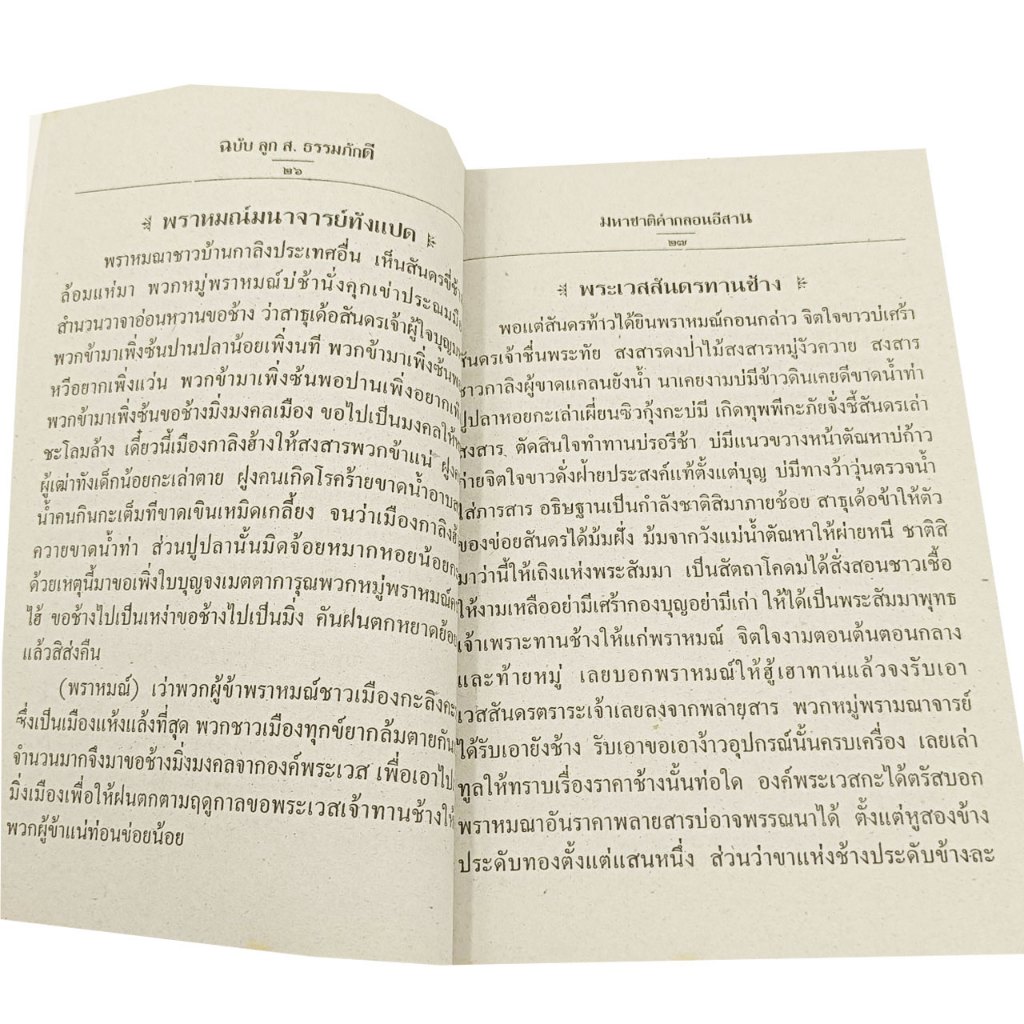 ฉบับ ลูก ส. ธรรมภักดี
๒๖
พราหมณ์มนาจารย์ทังแปด
พราหมณาชาวบ้านกาลิงประเทศอื่น เห็นสันดรขี่ช้าง
ล้อมแห่มา พวกหมู่พราหมณ์บ่ช้านั่งคุกเข่าประณม
สำนวนวาจาอ่อนหวานขอช้าง ว่าสาธุเด้อสันดรเจ้าผู้ใจบุญ
พวกข้ามาเพิ่งซ้นปานปลาน้อยเพิ่งนที พวกข้ามาเพิ่งซ้น
หวีอยากเพิ่งแว่น พวกข้ามาเพิ่งซ้นพอปานเพิ่งอยาก
พวกข้ามาเพิ่งซ้นขอช้างมิ่งมงคลเมือง ขอไปเป็นมงคลให้
ชะโลมล้าง เดี๋ยวนี้เมืองกาลิงฮ้างให้สงสารพวกข้าแน่ ฝูง
ผู้เฒ่าทังเด็กน้อยกะเล่าตาย ฝูงคนเกิดโรคร้ายขาดน้ำอาบ
น้ำคนกินกะเต็มทีขาดเขินเหมิดเกลี้ยง จนว่าเมืองกาลิง
ควายขาดน้ำท่า ส่วนปูปลานั้นมิดจ้อยหมากหอยน้อย
ด้วยเหตุนี้มาขอเพิ่งใบบุญจงเมตตาการุณพวกหมู่พราหมณ์
ไฮ้ ขอช้างไปเป็นเหง่าขอช้างไปเป็นมิ่ง คันฝนตกหยาดย้อย
แล้วสิส่งคืน
(พราหมณ์) เว่าพวกผู้ข้าพราหมณ์ชาวเมืองกะลิงคะ
ซึ่งเป็นเมืองแห้งแล้งที่สุด พวกชาวเมืองทุกข์ยากล้มตายกัน
จำนวนมากจึงมาขอช้างมิ่งมงคลจากองค์พระเวส เพื่อเอาไป
มิ่งเมืองเพื่อให้ฝนตกตามฤดูกาลขอพระเวสเจ้าทานช้างให้
พวกผู้ข้าแน่ท่อนข่อยน้อย
มหาชาติคำกลอนอีสาน
๒๗
พระเวสสันดรทานช้าง
พอแต่สันดรท้าวได้ยินพราหมณ์กอนกล่าว จิตใจขาวบ่เศร้า
สันดรเจ้าชื่นพระทัย สงสารดงป่าไม้สงสารหมู่งัวควาย สงสาร
ชาวกาลิงผู้ขาดแคลนยังน้ำ นาเคยงามบ่มีข้าวดินเคยดีขาดน้ำท่า
ปูปลาหอยกะเล่าเผี่ยนซิวกุ้งกะบ่มี เกิดทุพพีกะภัยจั่งชี้สันดรเล่า
สงสาร ตัดสินใจทำทานบ่รอรีช้า บ่มีแนวขวางหน้าตัณหาบ่ก้าว
ก่ายจิตใจขาวดั่งฝ้ายประสงค์แท้ตั้งแต่บุญ บ่มีทางว้าวุ่นตรวจน้ำ
ใส่ภารสาร อธิษฐานเป็นกำลังชาติสิมาภายช้อย สาธุเด้อข้าให้ตัว
ของข่อยสันดรได้ม้มฝั่ง ม้มจากวังแม่น้ำตัณหาให้ผ่ายหนี ชาติสิ
มาว่านี้ให้เถิงแห่งพระสัมมา เป็นสัตถาโคดมได้สั่งสอนชาวเชื้อ
ให้งามเหลืออย่ามีเศร้ากองบุญอย่ามีเก่า ให้ได้เป็นพระสัมมาพุทธ
เจ้าเพราะทานช้างให้แก่พราหมณ์ จิตใจงามตอนต้นตอนกลาง
และท้ายหมู่ เลยบอกพราหมณ์ให้ฮู้เฮาทานแล้วจงรับเอา
เวสสันดรตราระเจ้าเลยลงจากพล่ายสาร พวกหมู่พรามณาจารย์
ได้รับเอายังช้าง รับเอาขอเอาง้าวอุปกรณ์นั้นครบเครื่อง เลยเล่า
ทูลให้ทราบเรื่องราคาช้างนั้นท่อใด องค์พระเวสกะได้ตรัสบอก
พราหมณาอันราคาพลายสารบ่อาจพรรณนาได้ ตั้งแต่หูสองข้าง
ประดับทองตั้งแต่แสนหนึ่ง ส่วนว่าขาแห่งช้างประดับข้างละ